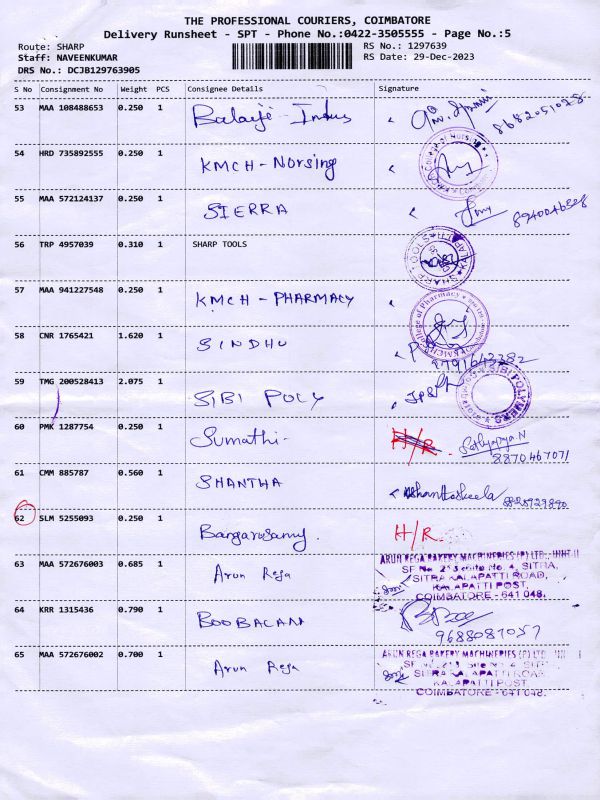 THE PROFESSIONAL COURIERS, COIMBATORE
Delivery Runsheet - SPT - Phone No.:0422-3505555 - Page No.:5
Route: SHARP RS No.: 1297639
Staff: NAVEENKUMAR RS Date: 29-Dec-2023
DRS No.: DCJB129763905
S No Consignment No Weight PCS Consignee Details Signature
53 MAA 108488653 0.250 1 Balaji Indus
54 HRD 735892555 0.250 1 KMCH - Norsing
55 MAA 572124137 0.250 1 SIERRA
56 TRP 4957039 0.310 1 SHARP TOOLS
57 MAA 941227548 0.250 1 KMCH - PHARMACY
58 CNR 1765421 1.620 1 SINDHU
59 TMG 200528413 2.075 1 SIBI POLY
60 PMK 1287754 0.250 1 Sumathi- H/R.
8870467071
61 CMM 885787 0.560 1 SHANTHA
62 SLM 5255093 0.250 1 H/R.
63 MAA 572676003 0.685 1 Arun Rega ARUN REGA BAKERY MACHINERIES (P) LTD.,
SITRA KALAPATTI ROAD,
KALAPATTI POST,
COIMBATORE - 641 048.
64 KRR 1315436 0.790 1 BOOBALAN
9688087057
65 MAA 572676002 0.700 1 Arun Rega ARUN REGA BAKERY MACHINERIES (P) LTD
KALAPATTI POST
COIMBATORE - 641 048.